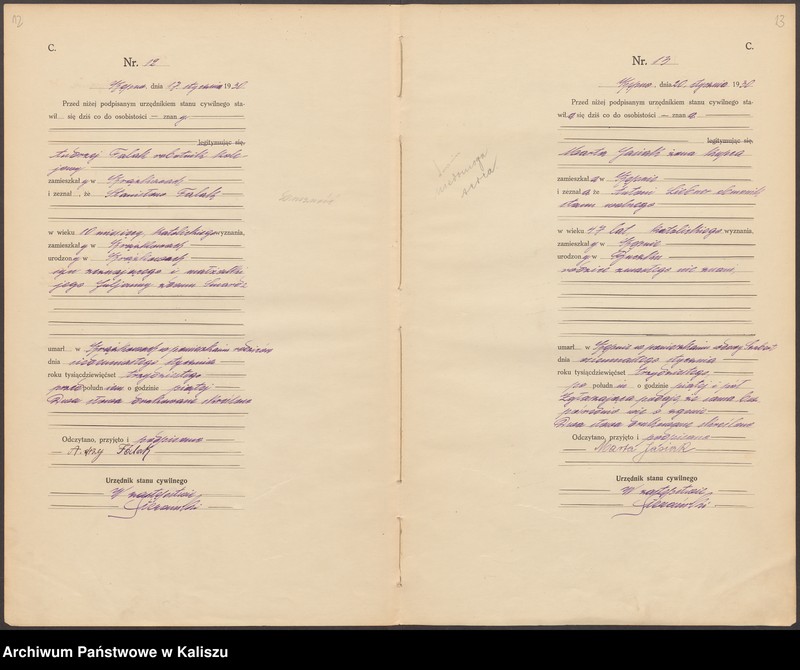 12
C.
Nr. 12
Kępno dnia 17. stycznia 1930.
Przed niżej podpisanym urzędnikiem stanu cywilnego sta-
wił się dziś co do osobistości — znany
legitymując się,
Falak robotnik kole-
jowy
zamieszkały w Krążkowach
i zeznał, że Stanisław Falak
w wieku 10 miesięcy katolickiego wyznania,
zamieszkały w Krążkowach
urodzony w Krążkowach
syn zeznającego i małżonki
jego Juljanny
umarł w Krążkowach w pomieszkaniu rodziców
dnia stycznia
roku tysiącdziewięćset trzydziestego
przed południem o godzinie piątej
Dwa słowa drukowane skreślono
Odczytano, przyjęto i podpisano
Falak
Urzędnik stanu cywilnego
W zastępstwie
13
C.
Nr. 13
Kępno dnia 20. stycznia 1930.
Przed niżej podpisanym urzędnikiem stanu cywilnego sta-
wiła się dziś co do osobistości — znana
legitymując się,
Marta Jasiak żona
zamieszkała w Kępnie
i zeznała że Antoni
stanu wolnego
w wieku 77 lat katolickiego wyznania,
zamieszkały w Kępnie
urodzony w
rodzice zmarłego nie znani,
umarł w Kępnie w pomieszkaniu
dnia osiemnastego stycznia
roku tysiącdziewięćset trzydziestego
po południu o godzinie piątej i pół
Zgłaszająca podaje że sama
wie o zgonie
Dwa słowa drukowane skreślono
Odczytano, przyjęto i podpisano
Marta Jasiak
Urzędnik stanu cywilnego
W zastępstwie
Archiwum Państwowe w Kaliszu